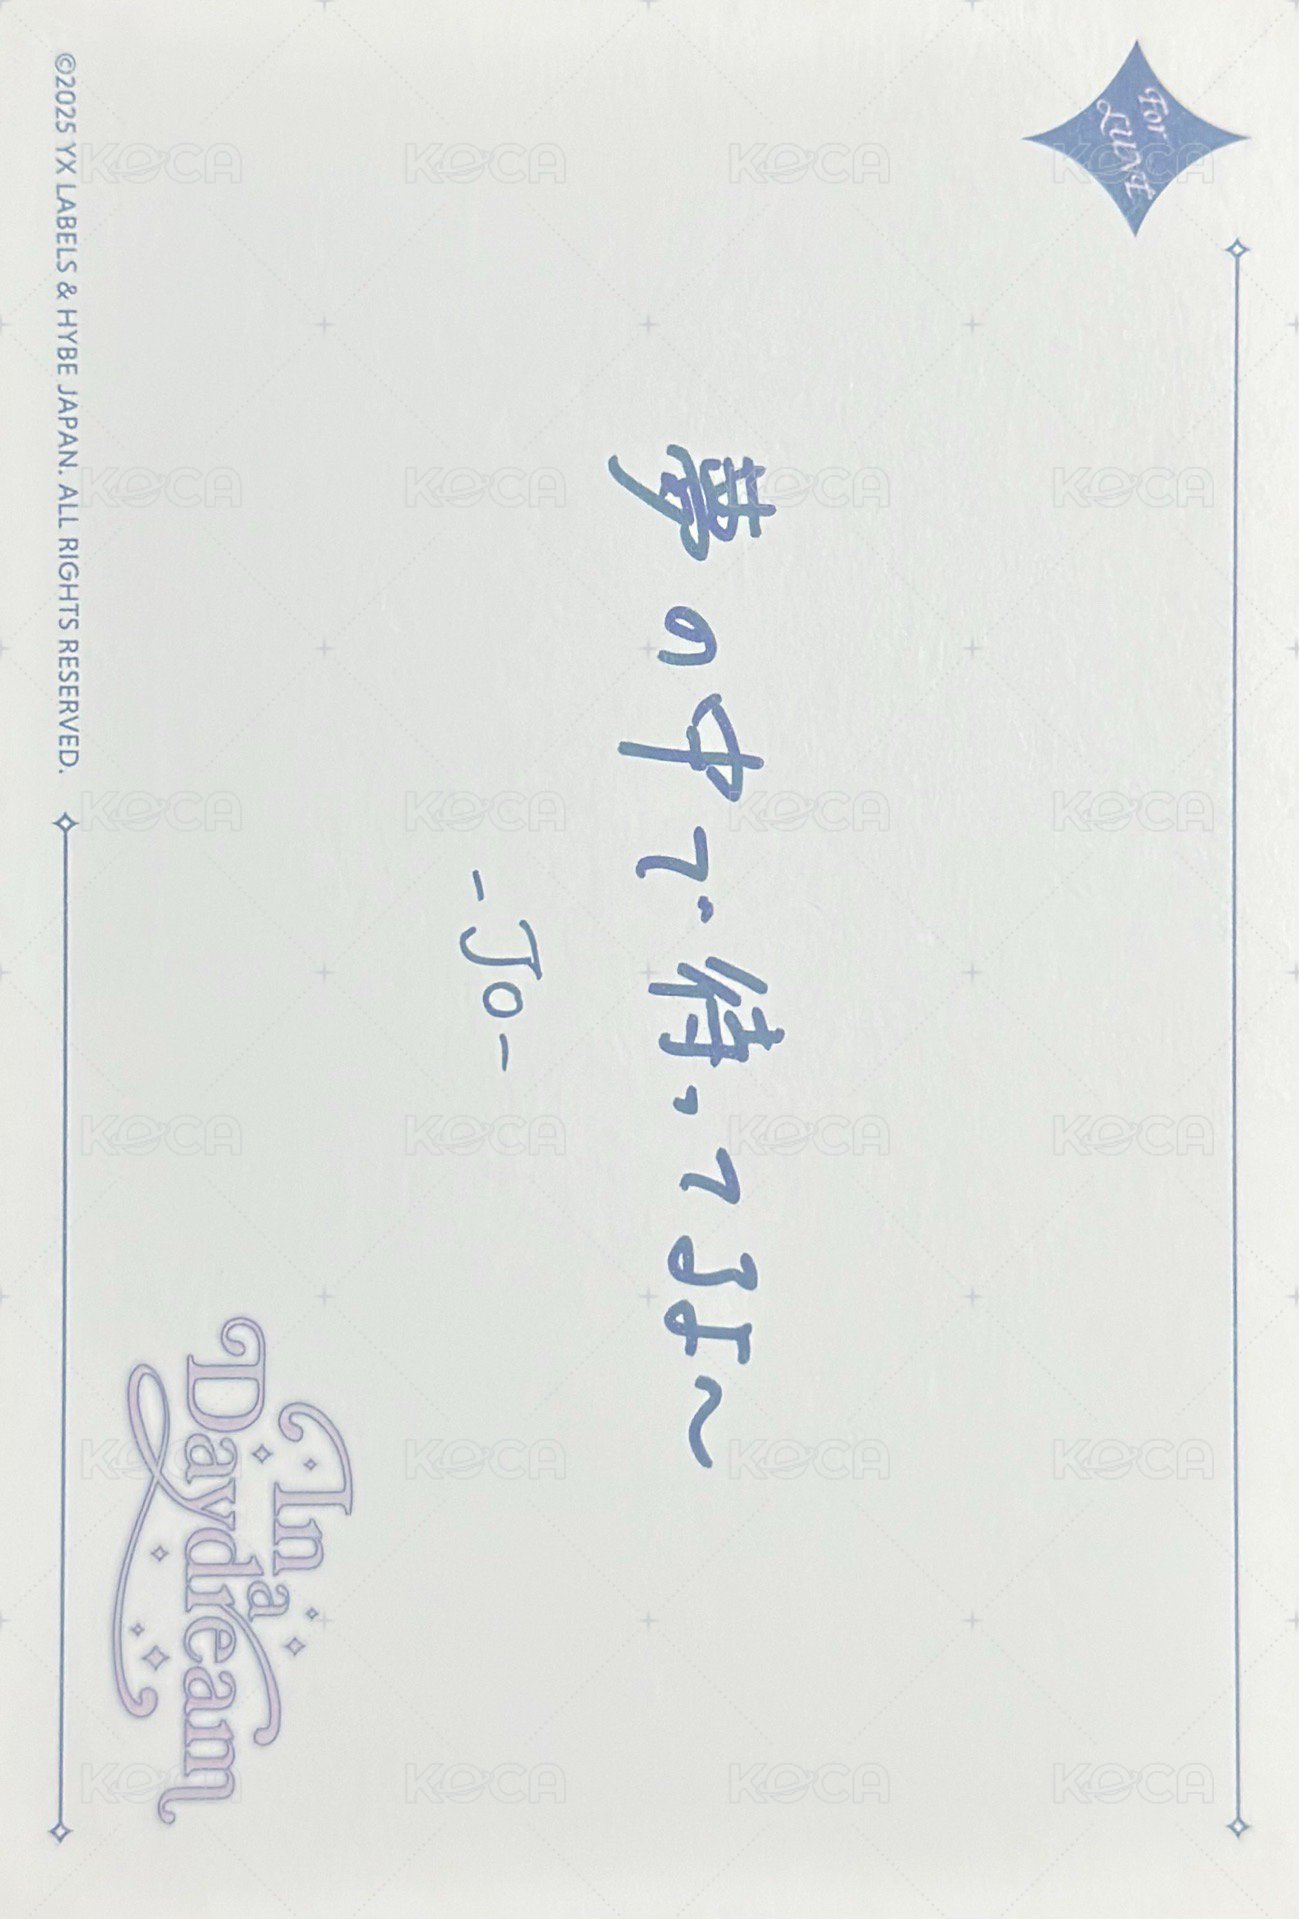 For
LUNÉ
夢の中で待ってるよ〜
-Jo-
In
a
Daydream
©2025 YX LABELS & HYBE JAPAN. ALL RIGHTS RESERVED.
KOCA KOCA KOCA KOCA
KOCA KOCA KOCA KOCA
KOCA KOCA KOCA KOCA
KOCA KOCA KOCA KOCA
KOCA KOCA KOCA KOCA
KOCA KOCA KOCA KOCA